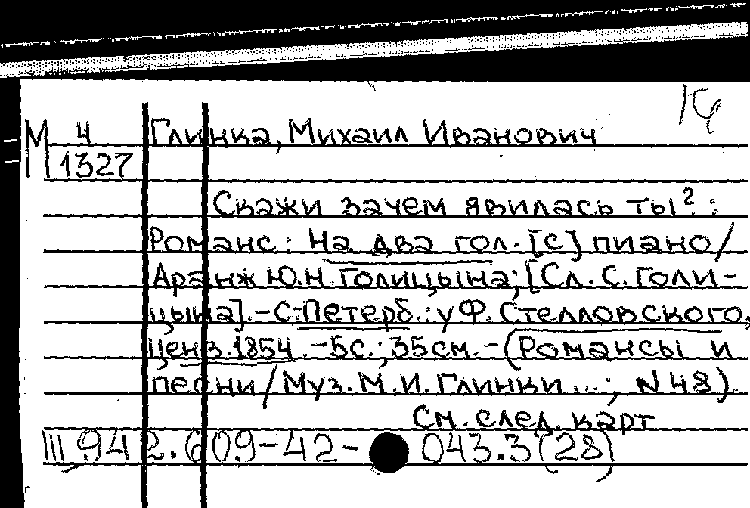 16
М 4 Глинка, Михаил Иванович
1327
Скажи зачем явилась ты?:
Романс: На два гол. [с] пиано/
Аранж Ю.Н. Голицына; [Сл. С. Голи-
цына]. - С.-Петерб.: у Ф. Стелловского,
ценз. 1854. - 5с.; 35см. - (Романсы и
песни/Муз. М.И. Глинки...; №48).
См. след. карт
III 942.609-42- 043.3(28)